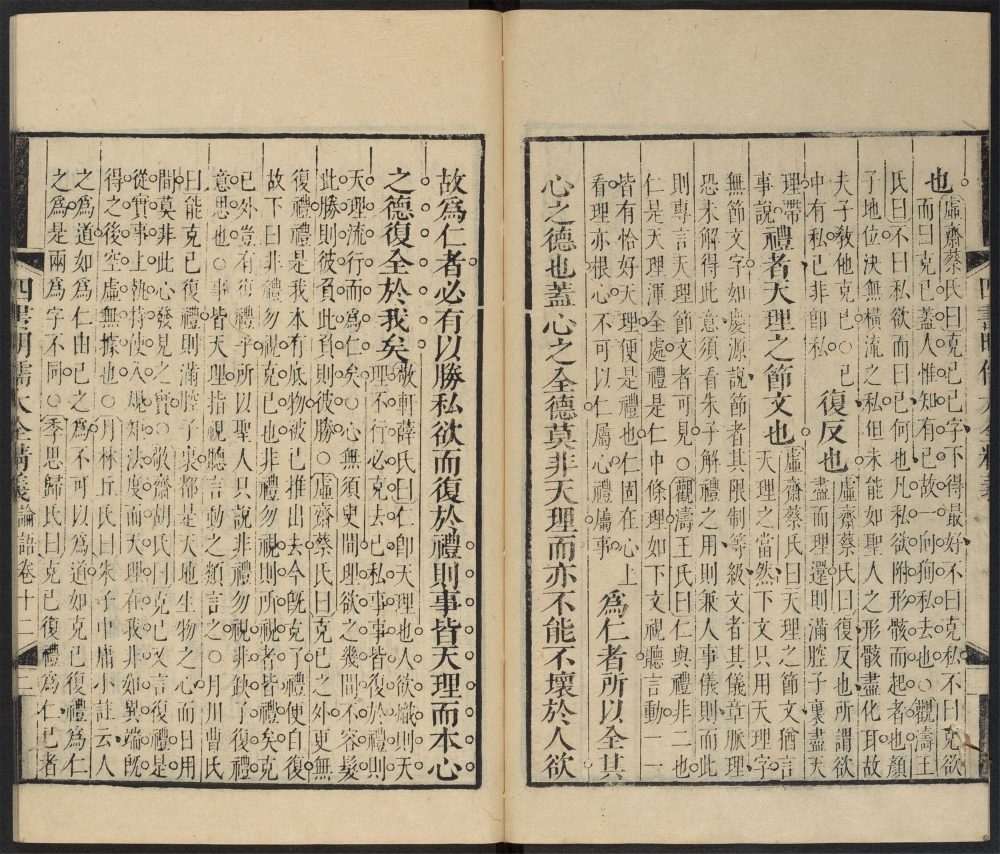 也
虛齋蔡氏曰克己己字下得最好不曰克私不曰克欲
而曰克己蓋人惟知有己故一向狥私去也○觀濤王
氏曰不曰私欲而曰己何也凡私欲附形骸而起者也顏
子地位決無橫流之私但未能如聖人之形骸盡化耳故
夫子教他克己○己
中有私己非卽私
復反也
虛齋蔡氏曰復反也所謂欲
盡而理還則滿腔子裏盡天
理帶
事說
禮者天理之節文也
虛齋蔡氏曰天理之節文猶言
天理之當然下文只用天理字
無節文字如慶源說節者其限制等級文者其儀章脈理
恐未解得此意須看朱子解禮之用則兼人事儀則而此
則專言天理節文者可見○觀濤王氏曰仁與禮非二也
仁是天理渾全處禮是仁中條理如下文視聽言動一一
皆有恰好天理便是禮也仁固在心上
看理亦根心不可以仁屬心禮屬事
為仁者所以全其
心之德也蓋心之全德莫非天理而亦不能不壞於人欲
故為仁者必有以勝私欲而復於禮則事皆天理而本心
之德復全於我矣
敬軒薛氏曰仁卽天理也人欲熾則天
理不行必克去己私事事皆復於禮則
天理流行而為仁矣○心無須臾間理欲之幾間不容髮
此勝則彼負此負則彼勝○虛齋蔡氏曰克己之外更無
復禮禮是我本有底物被己推出去今既克了己便自復
故下曰非禮勿視克己也非禮勿視則所視者皆禮矣克
己外豈有復禮乎所以聖人只說非禮勿視非缺了復禮
意思也○事皆天理指視聽言動之類言之○月川曹氏
曰能克己復禮則滿腔子裏都是天地生物之心而日用
間莫非此心發見之實○敬齋胡氏曰克己又言復禮是
從實事上執持使入規矩法度而天理在我非如異端既
得之後空虛無據也○月林丘氏曰朱子中庸小註云人
之為道如為仁由己之為不可以為道如克己復禮為仁
之為是兩為字不同○季思歸氏曰克己復禮為仁己者
四書明儒大全精義論語卷十二 二